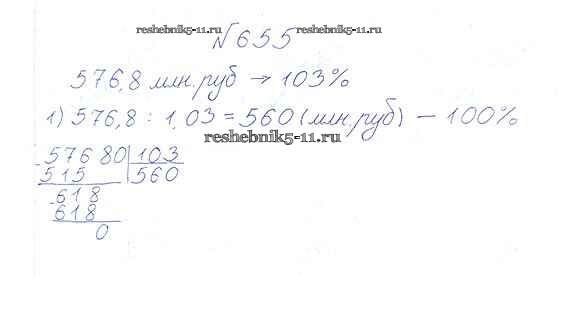 reshebnik5-11.ru reshebnik5-11.ru
№655
576,8 млн.руб → 103%
1) 576,8 : 1,03 = 560 (млн.руб) — 100%
reshebnik5-11.ru
57680 103
515 560
618
618
0